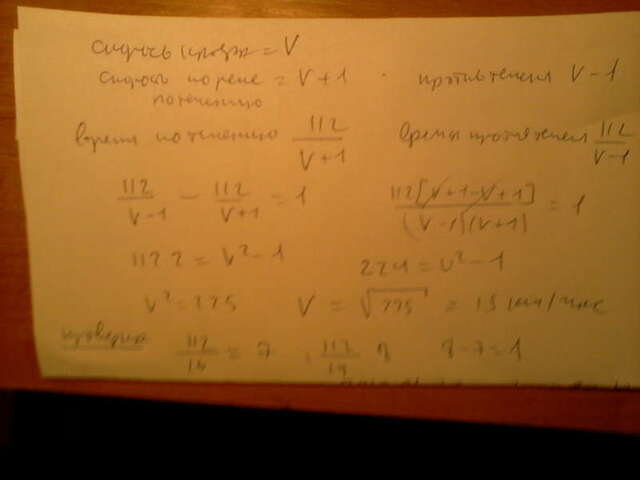 скорость = V
скорость по реке = V+1 против течения V-1
по течению
время по течению 112/V+1 время против течения 112/V-1
112/V-1 - 112/V+1 = 1 112[V+1-V+1]/(V-1)(V+1) = 1
112 2 = V²-1 224 = V²-1
V² = 225 V = √225 = 15 км/час
проверка 112/16 = 7 , 112/14 8 8-7=1